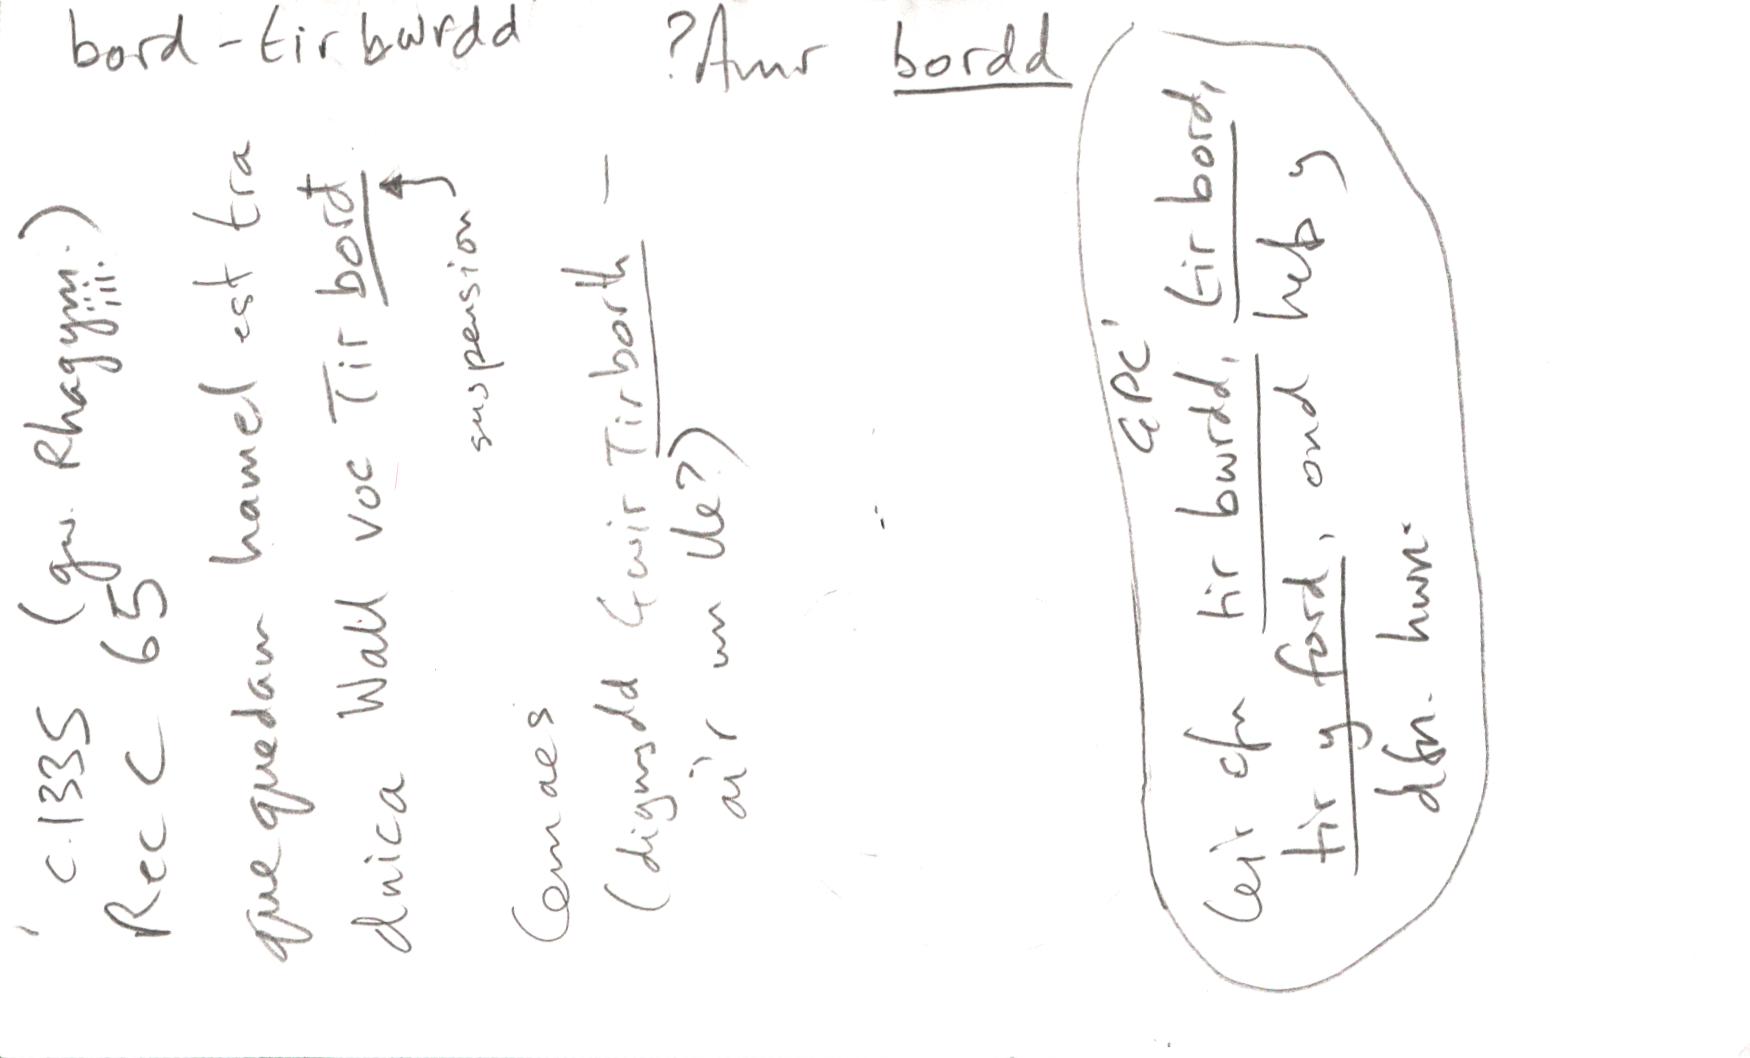 bord - tir bwrdd ?Amr bordd
c. 1335 (gw. Rhagym.)
Rec C 65
que quedam hamel est tra
dnica Wall voc Tir bord
suspension
Cemaes
(digwydd Gwir Tirborth –
ai'r un lle?)
GPC
Ceir cfn tir bwrdd, tir bord,
tir y ford, ond heb y
dfn. hwn.